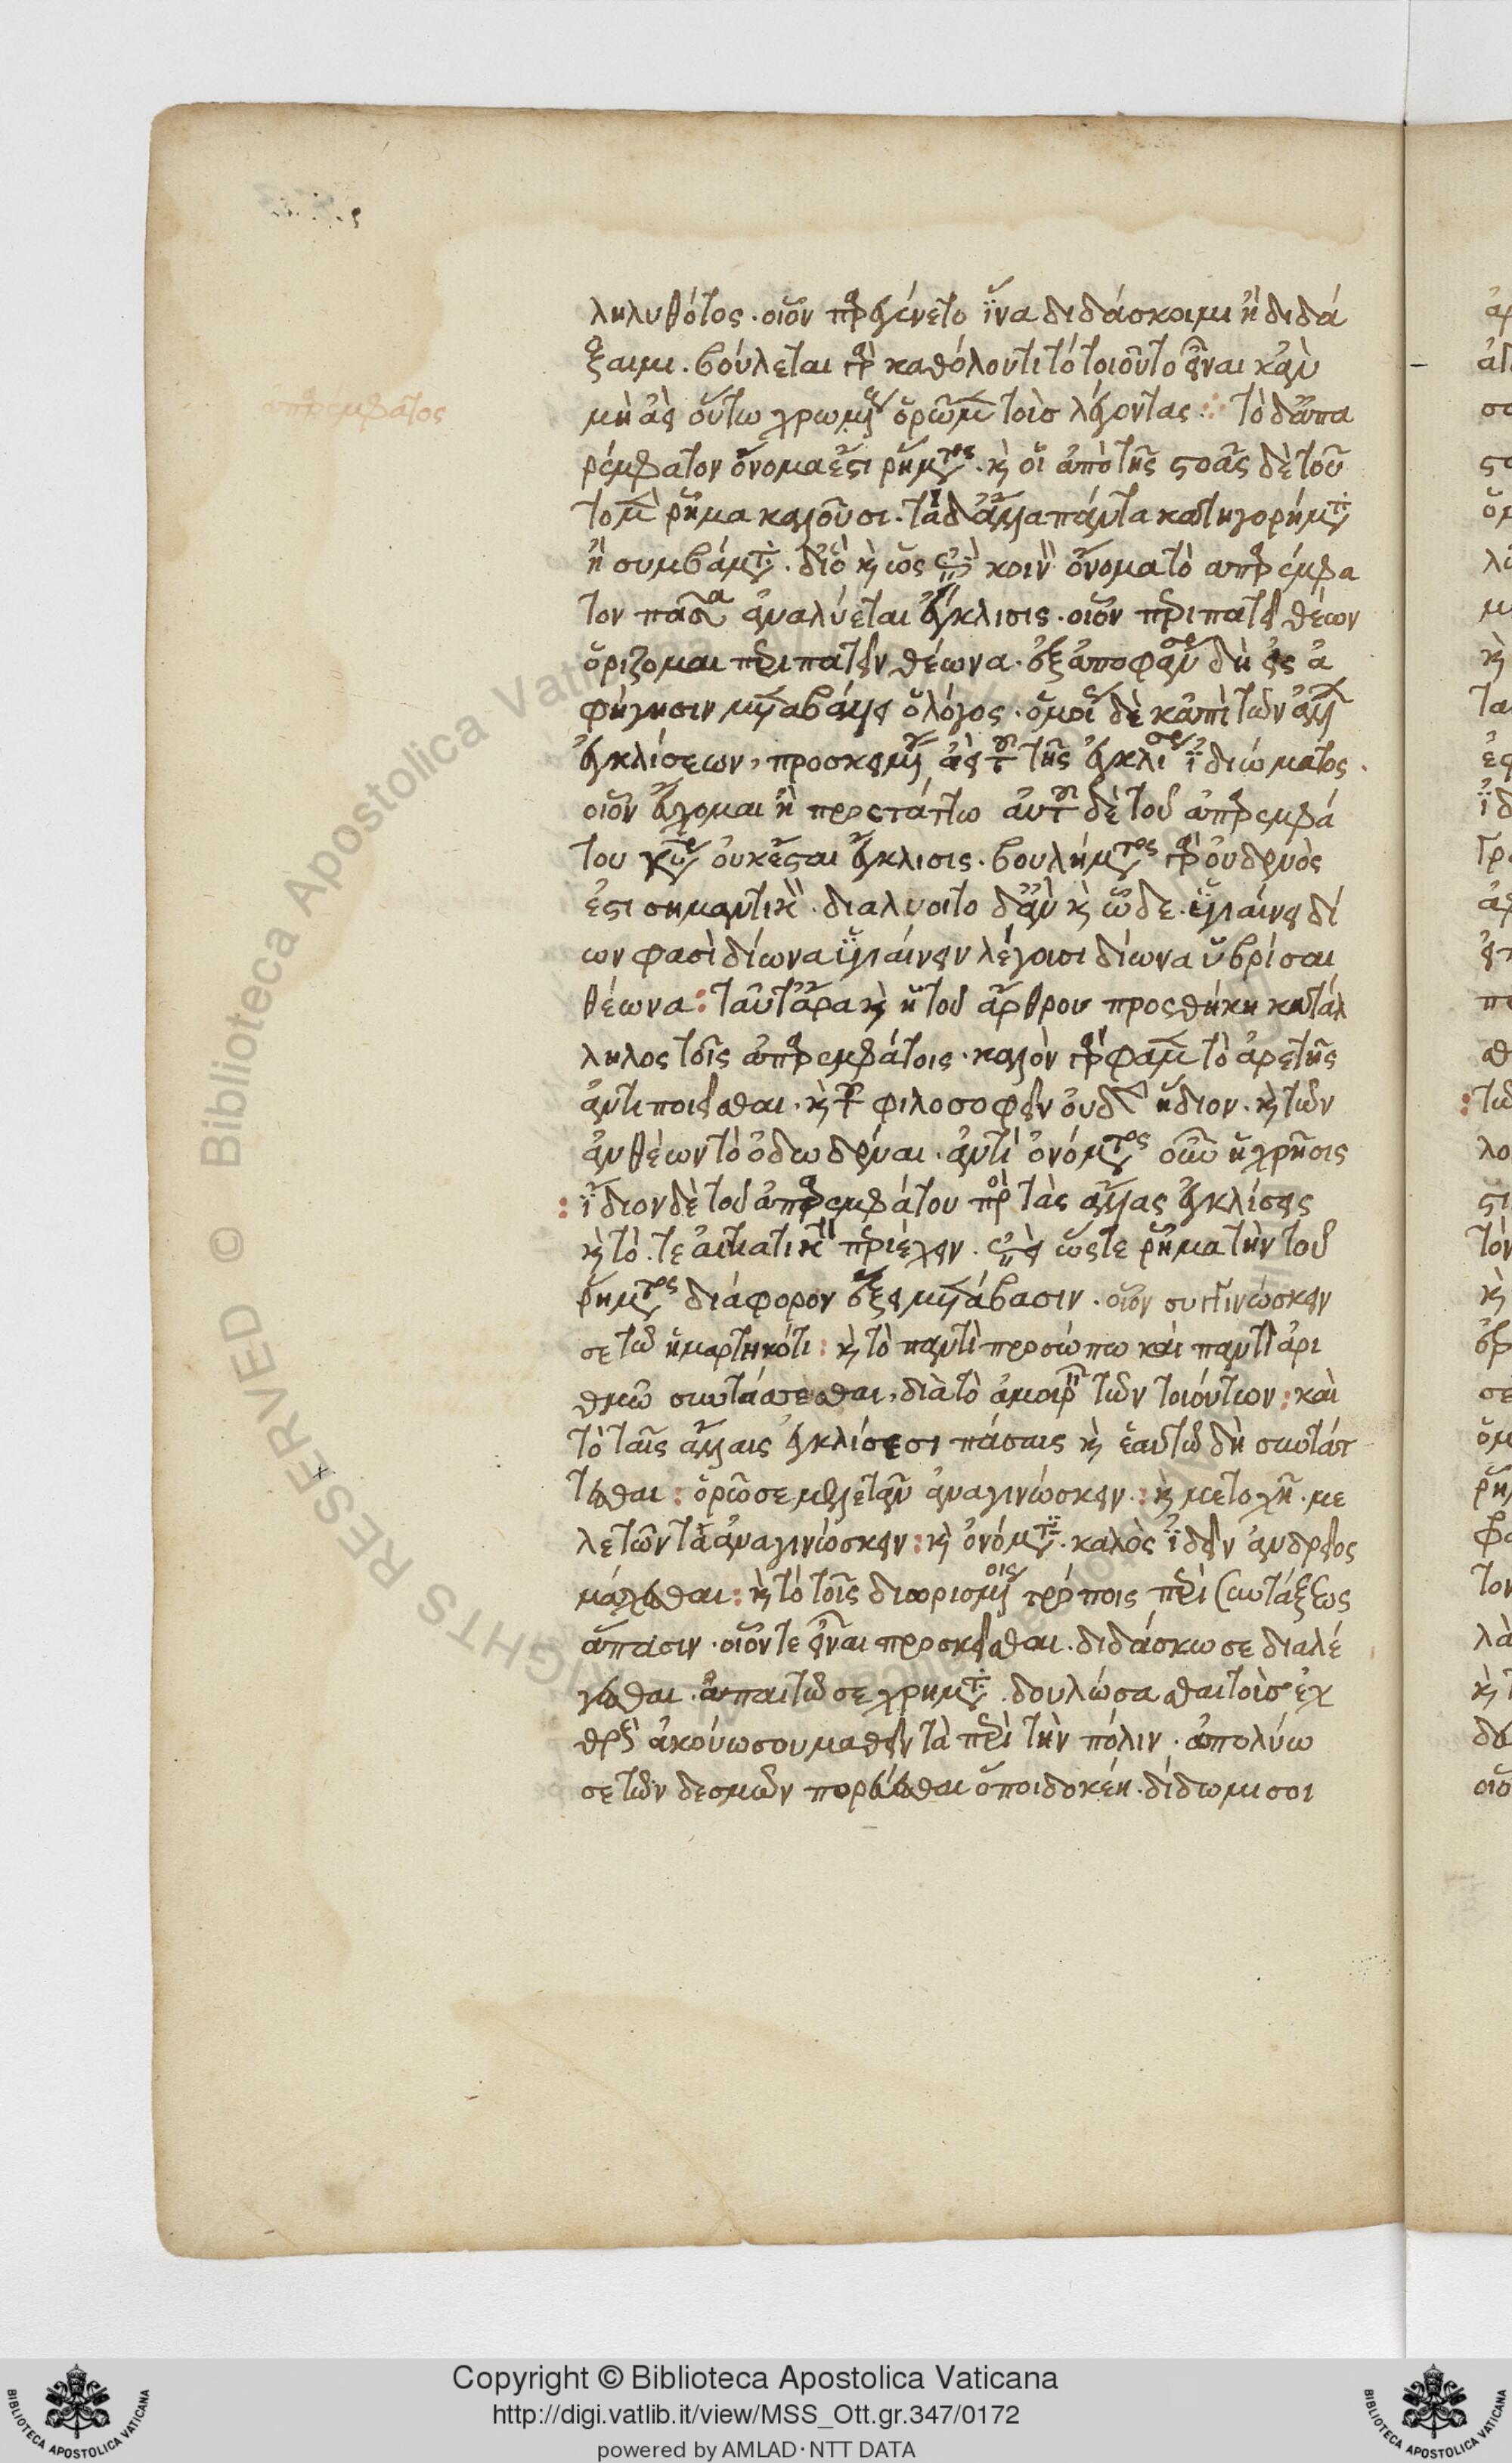 ἀπαρεμφατος
ληλυθότος. οἷον παρεγένετο ἵνα διδάσκοιμι ἢ διδά
ξαιμι. βούλεται γὰρ καθόλου τι τὸ τοιοῦτο εἶναι κἂν
μὴ ἀεὶ οὕτω χρωμένους ὁρῶμεν τοὺς λέγοντας : τὸ δ' ἀπα
ρέμφατον ὄνομα ἐστι ρήματος. καὶ οἱ ἀπὸ τῆς στοᾶς δὲ τοῦ
το μὲν ῥῆμα καλοῦσι. τὰ δ' ἄλλα πάντα κατηγορήματα
ἢ συμβάματα. διὸ καὶ ὡς εἰς κοινὸν ὄνομα τὸ απαρέμφα
τον πᾶσα ἀναλύεται ἔγκλισις. οἷον περιπατεῖ θέων
ὁρίζομαι περιπατεῖν θέωνα. ἐξ ἀποφάνσεως δὴ εἰς ἀ
φήγησιν μεταβάλλει ὁ λόγος. ὅμοιως δὲ κἀπὶ τῶν ἄλλων
ἐγκλίσεων, προσκειμένου ἀεὶ τοῦ τῆς ἐγκλίσεως ἰδιώματος.
οἷον εὔχομαι ἢ προστάττω αὐτοῦ δὲ τοῦ ἀπαρεμφά
του οὐκ ἔσται ἔγκλισις. βουλήματος γὰρ οὐδενὸς
ἐστι σημαντικὸν. διαλύοιτο δ' ἂν καὶ ὧδε. ὑγιαίνει δί
ων φασὶ δίωνα ὑγιαίνειν λέγουσι δίωνα ὑβρίσαι
θέωνα : ταῦτ' ἄρα καὶ ἡ τοῦ ἄρθρου προσθήκη κατάλ
ληλος τοῖς ἀπαρεμφάτοις. καλὸν γὰρ φαμὲν τὸ ἀρετῆς
ἀντιποιεῖσθαι. καὶ τοῦ φιλοσοφεῖν οὐδὲν ἥδιον. καὶ τῶν
ἀνθέων τὸ ὀδωδέναι. ἀντὶ ὀνόματος οὖν ἡ χρῆσις
: ἴδιον δὲ τοῦ ἀπαρεμφάτου πρὸς τὰς ἄλλας ἐγκλίσεις
καὶ τὸ τε αἰτιατικὴν περιέχειν. ὥστε ῥῆμα τὴν τοῦ
ῥήματος διάφορον ἕξει μετάβασιν. οἷον συγγινώσκειν
σε τῷ ἡμαρτηκότι : καὶ τὸ παντὶ προσώπω καὶ παντὶ ἀρι
θμῷ συντάσσεσθαι, διὰ τὸ ἀμοιρεῖν τῶν τοιούτων : καὶ
τὸ ταῖς ἄλλαις ἐγκλίσεσι πάσαις καὶ ἑαυτῷ δὴ συντάτ
τεσθαι : ὁρῶ σε μελετᾶν ἀναγινώσκειν : καὶ μετοχῆ. με
λετῶντα ἀναγινώσκειν : καὶ ὀνόματι. καλὸς ἰδεῖν ἀνδρεῖος
μάχεσθαι : καὶ τὸ τοῖς διωρισμένοις τρόποις περὶ συντάξεως
ἅπασιν. οἷόν τε εἶναι προσκεῖσθαι. διδάσκω σε διαλέ
γεσθαι. ἀπαιτῶ σε χρήματα. δουλώσασθαι τοὺς ἐχ
θροὺς ἀκούω σου μαθεῖν τὰ περὶ τὴν πόλιν. ἀπολύω
σε τῶν δεσμῶν πορεύεσθαι ὅποι δοκέῃ. δίδωμι σοι
Copyright © Biblioteca Apostolica Vaticana
http://digi.vatlib.it/view/MSS_Ott.gr.347/0172
powered by AMLAD · NTT DATA